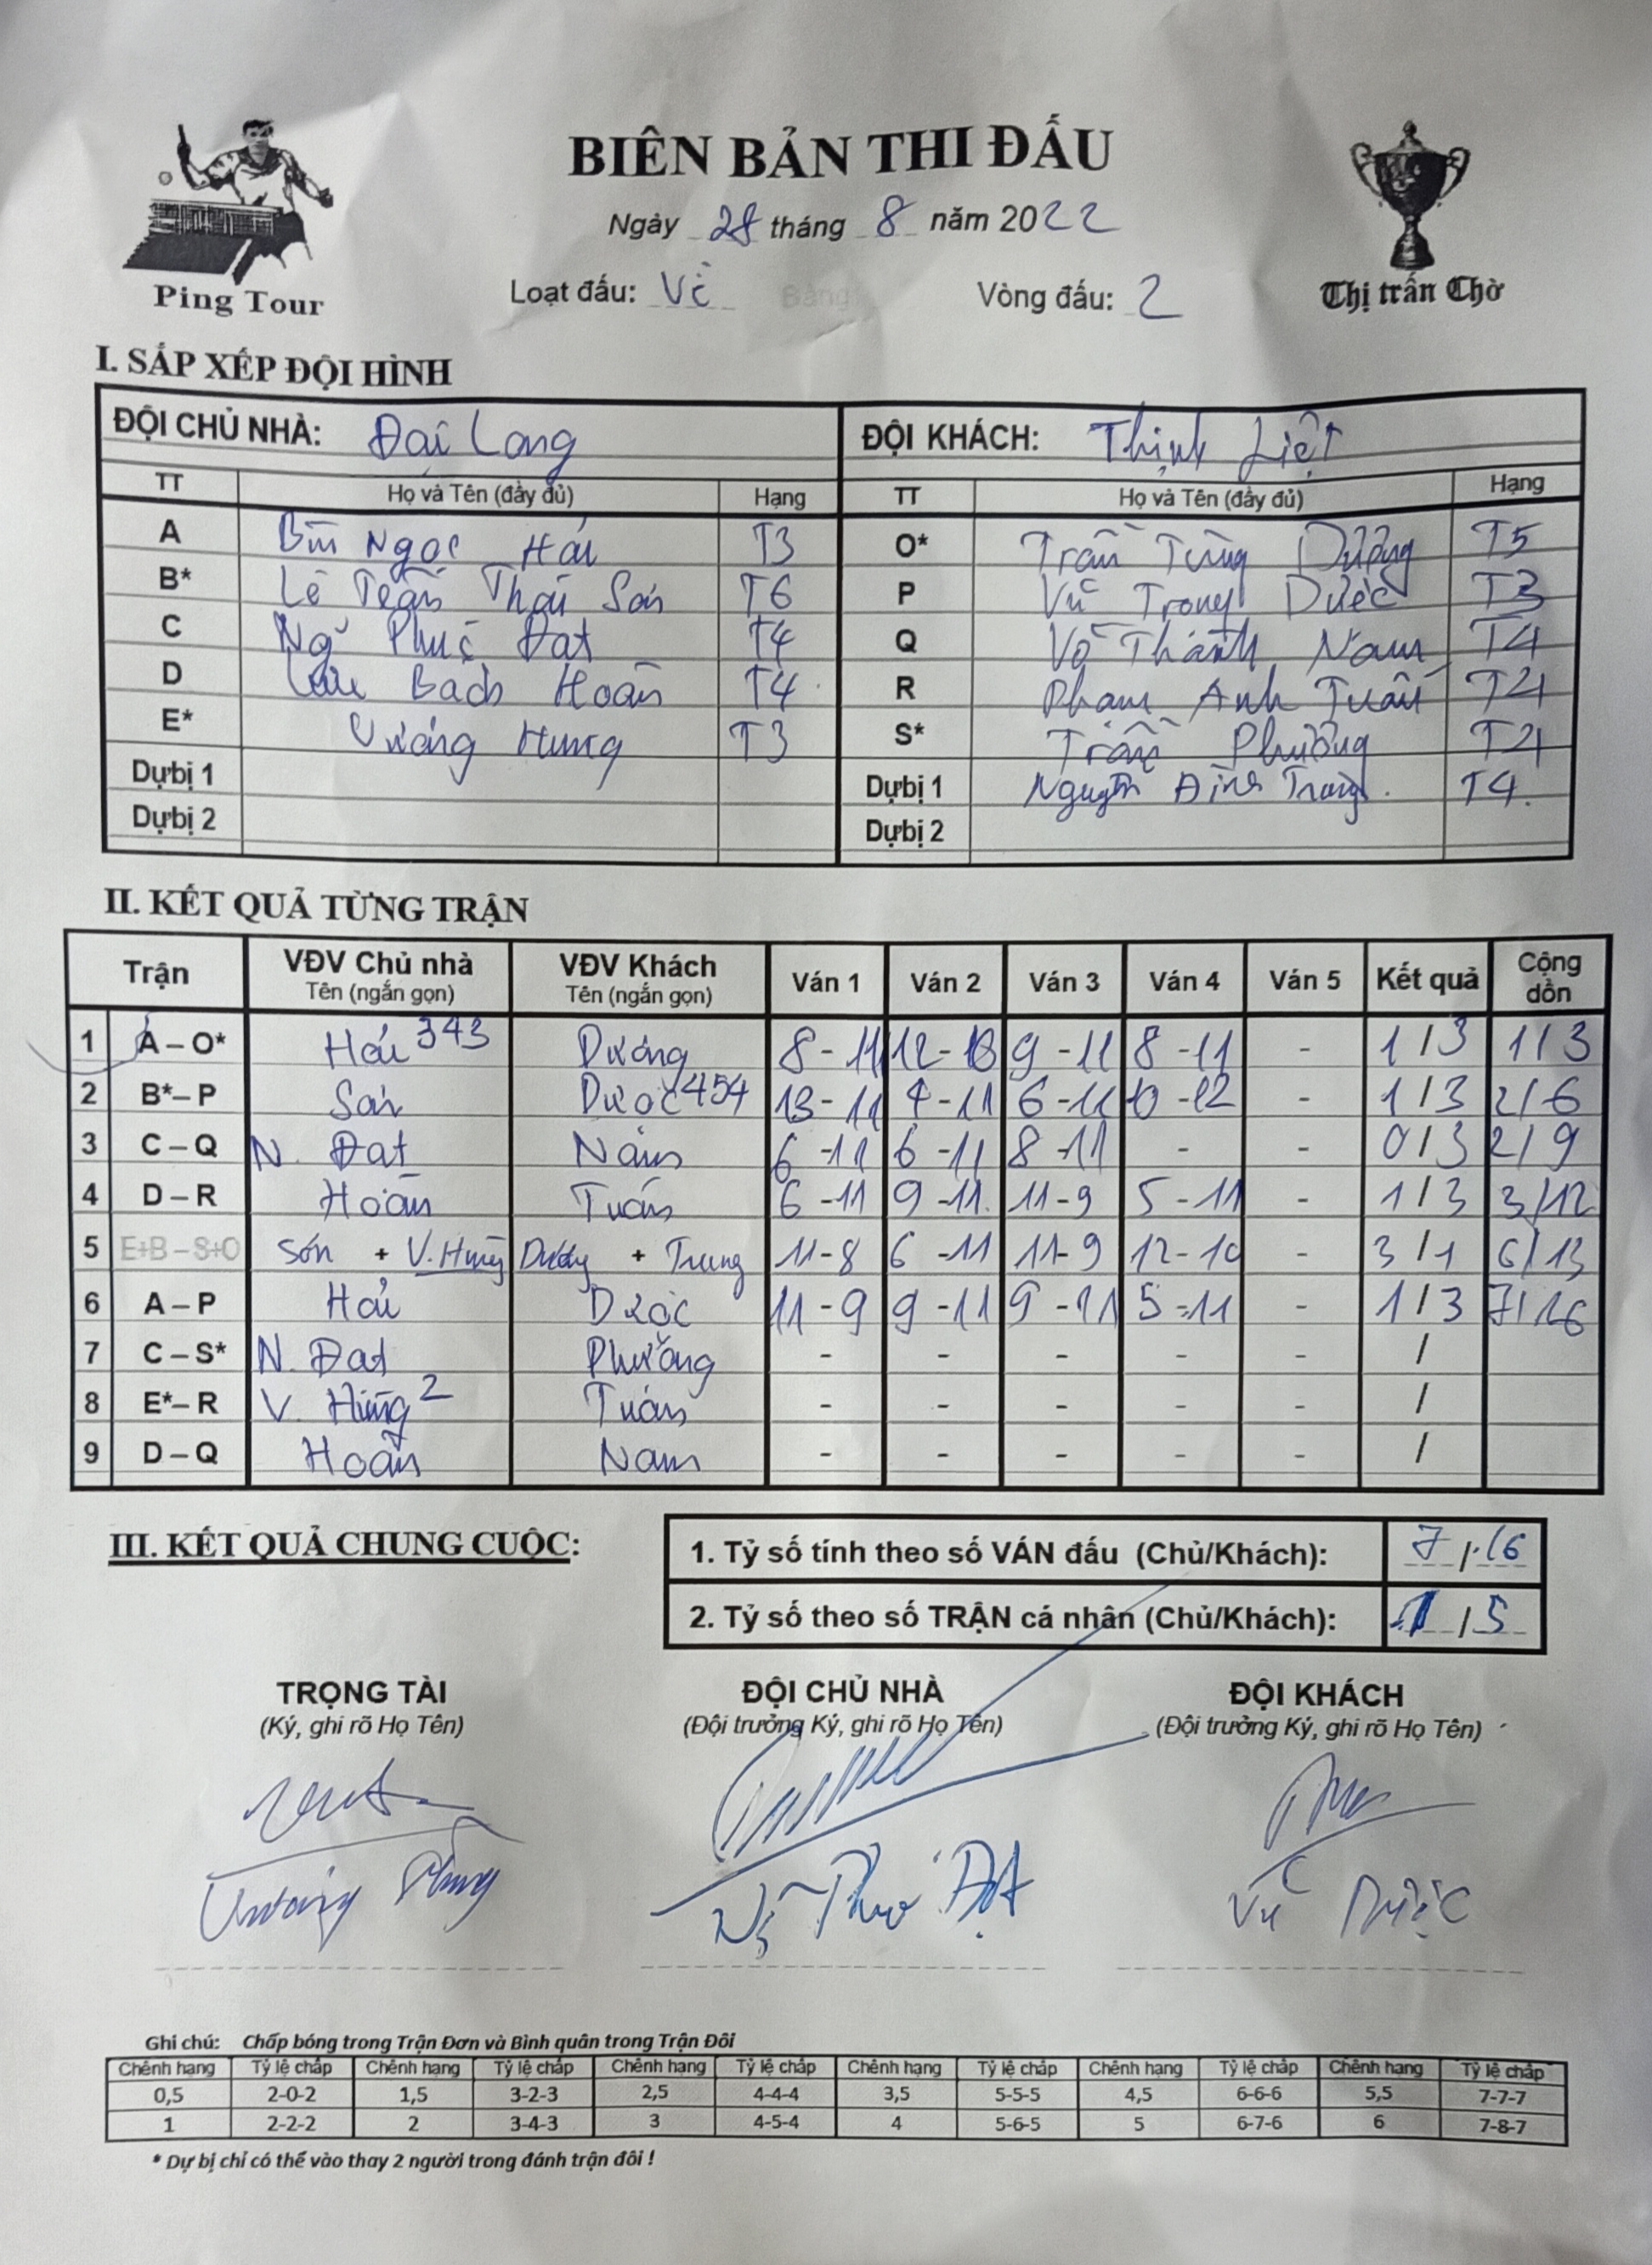 BIÊN BẢN THI ĐẤU
Ngày 28 tháng 8 năm 2022
Ping Tour
Loạt đấu: Về Bảng Vòng đấu: 2
Thị trấn Chờ
I. SẮP XẾP ĐỘI HÌNH
ĐỘI CHỦ NHÀ: Đại Long ĐỘI KHÁCH: Thịnh Liệt
TT Họ và Tên (đầy đủ) Hạng TT Họ và Tên (đầy đủ) Hạng
A Bùi Ngọc Hải T3 O* Trần Tùng Dương T5
B* Lê Thái Sơn T6 P Vũ Trọng Dược T3
C Ng Phúc Đạt T4 Q Võ Thành Nam T4
D Bach Hoàn T4 R Phạm Anh Tuấn T4
E* Vương Hưng T3 S* Trần Phương T4
Dự bị 1 Dự bị 1 Nguyễn Đình Trung T4
Dự bị 2 Dự bị 2
II. KẾT QUẢ TỪNG TRẬN
Trận VĐV Chủ nhà Tên (ngắn gọn) VĐV Khách Tên (ngắn gọn) Ván 1 Ván 2 Ván 3 Ván 4 Ván 5 Kết quả Cộng dồn
1 A – O* Hải 343 Dương 8 - 11 12 - 10 9 - 11 8 - 11 - 1 / 3 1 / 3
2 B* – P Sơn Dược 454 13 - 11 4 - 11 6 - 11 10 - 12 - 1 / 3 2 / 6
3 C – Q N. Đạt Nam 6 - 11 6 - 11 8 - 11 - - 0 / 3 2 / 9
4 D – R Hoàn Tuấn 6 - 11 9 - 11 11 - 9 5 - 11 - 1 / 3 3 / 12
5 E+B – S+O Sơn + V. Hưng Dương + Trung 11 - 8 6 - 11 11 - 9 12 - 10 - 3 / 1 6 / 13
6 A – P Hải Dược 11 - 9 9 - 11 9 - 11 5 - 11 - 1 / 3 7 / 16
7 C – S* N. Đạt Phương - - - - - /
8 E* – R V. Hưng 2 Tuấn - - - - - /
9 D – Q Hoàn Nam - - - - - /
III. KẾT QUẢ CHUNG CUỘC:
1. Tỷ số tính theo số VÁN đấu (Chủ/Khách): 7 / 16
2. Tỷ số theo số TRẬN cá nhân (Chủ/Khách): 1 / 5
TRỌNG TÀI ĐỘI CHỦ NHÀ ĐỘI KHÁCH
(Ký, ghi rõ Họ Tên) (Đội trưởng Ký, ghi rõ Họ Tên) (Đội trưởng Ký, ghi rõ Họ Tên)
Ng Phúc Đạt Vũ Dược
Ghi chú: Chấp bóng trong Trận Đơn và Bình quân trong Trận Đôi
Chênh hạng Tỷ lệ chấp Chênh hạng Tỷ lệ chấp Chênh hạng Tỷ lệ chấp Chênh hạng Tỷ lệ chấp Chênh hạng Tỷ lệ chấp Chênh hạng Tỷ lệ chấp
0,5 2-0-2 1,5 3-2-3 2,5 4-4-4 3,5 5-5-5 4,5 6-6-6 5,5 7-7-7
1 2-2-2 2 3-4-3 3 4-5-4 4 5-6-5 5 6-7-6 6 7-8-7
* Dự bị chỉ có thể vào thay 2 người trong đánh trận đôi !